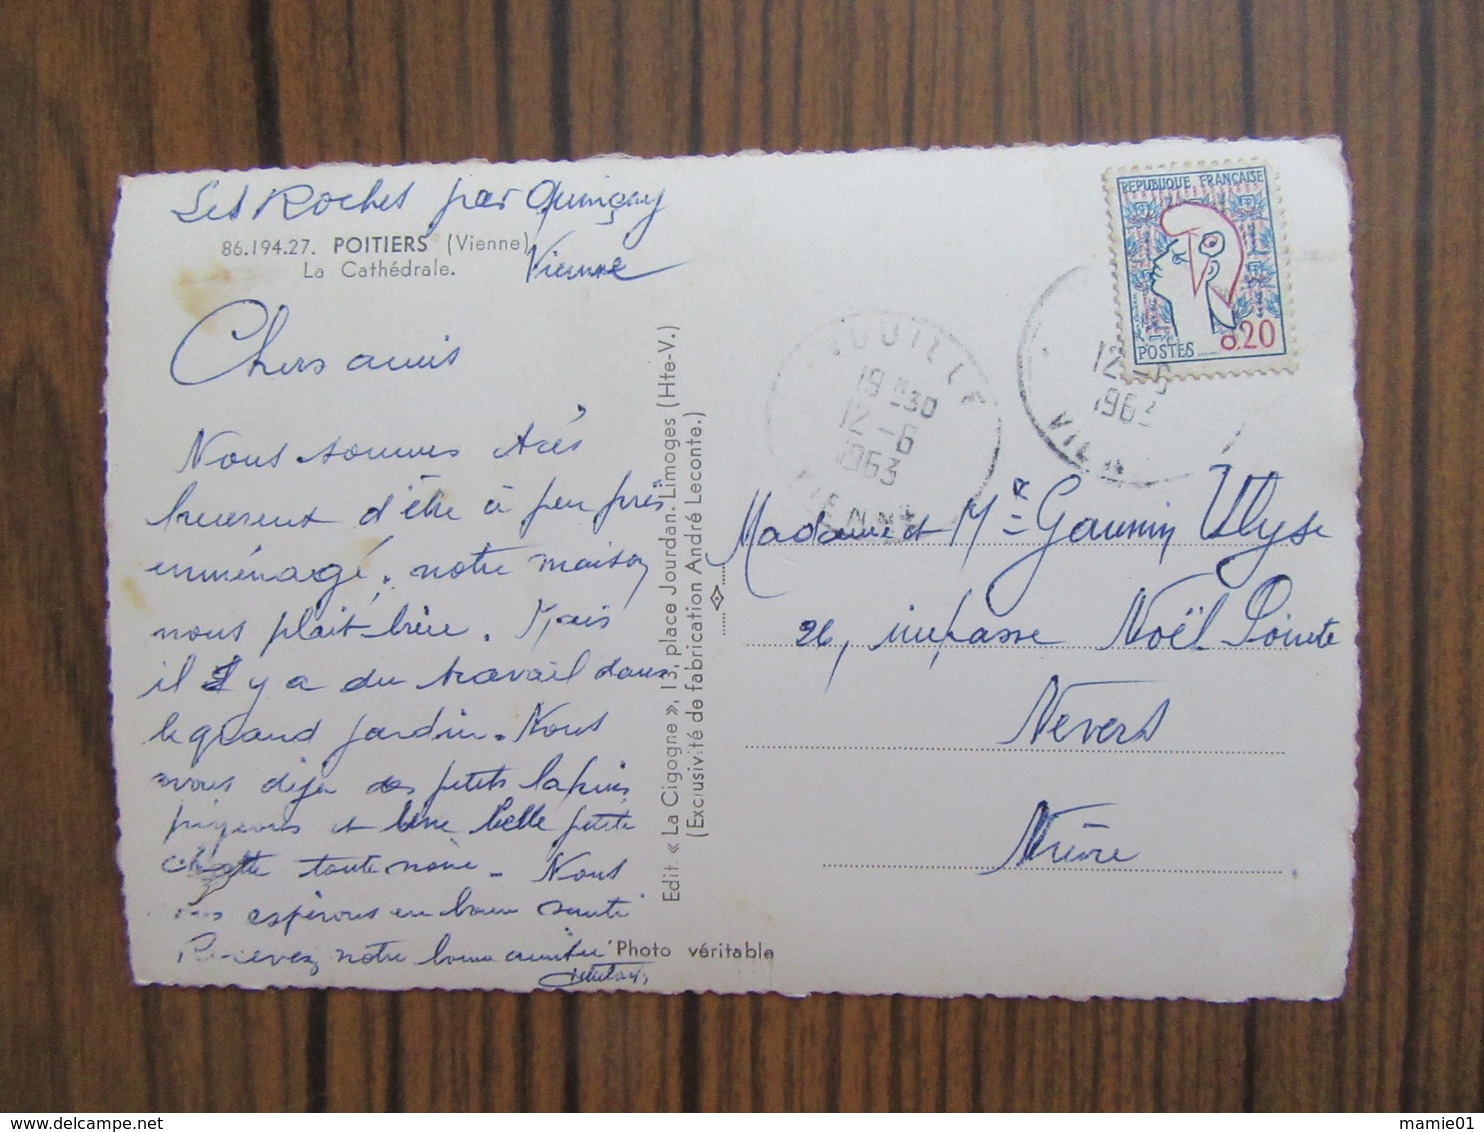 Les Roches par Quinçay
Vienne
86.194.27. POITIERS (Vienne)
La Cathédrale.
Chers amis
Nous sommes très
heureux d'être à peu près
enménagé. notre maison
nous plait bien. Mais
il y a du travail dans
le grand jardin. Nous
avons déja des petits lapins
pigeons et une belle petite
chatte toute noire - Nous
vous espérons en bonne santé
Recevez notre bonne amitié
Photo véritable
Edit. « La Cigogne », 13, place Jourdan. Limoges (Hte-V.)
(Exclusivité de fabrication André Leconte.)
VOUILLE
19 H30
12 -6
1963
VIENNE
12 -6
1963
VIENN
REPUBLIQUE FRANÇAISE
POSTES
0.20
Madame et Mr Gaumin Ulysse
26, impasse Noël Pointe
Nevers
Nièvre
mamie01